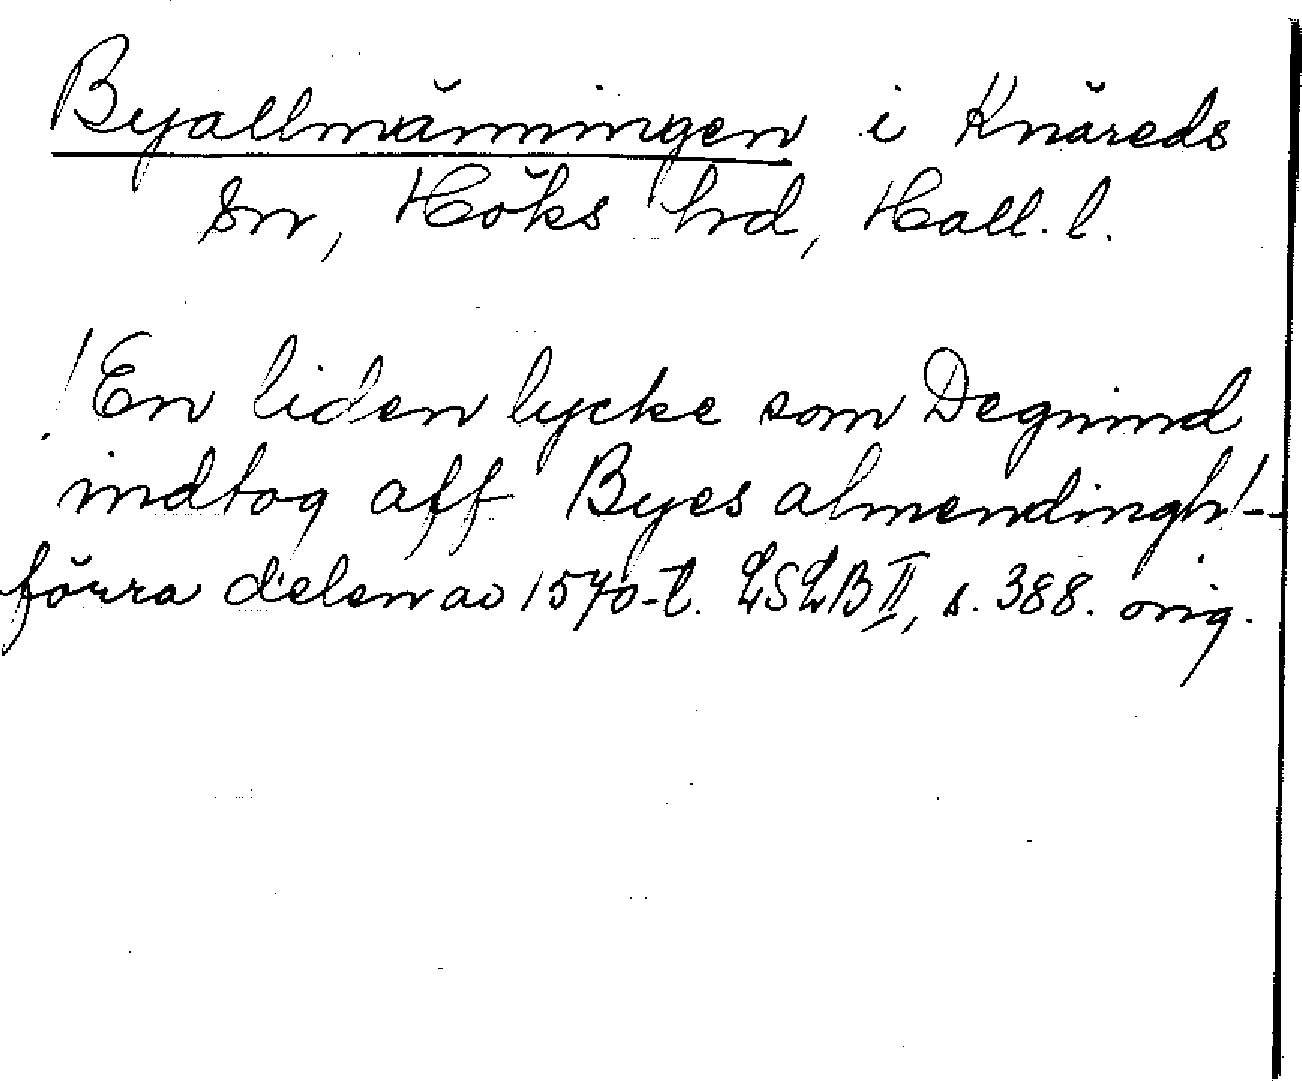 Byallmänningen i Knäreds
sn, Höks hd, Hall. l.
! En liden lycke som Degnind
indtog aff Byes almendingh ! -
förra delen av 1570-t. LSLB II, s. 388. orig.